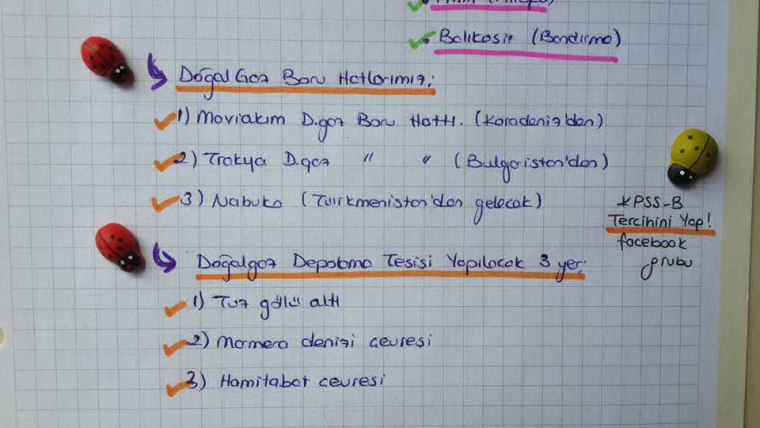 • Balıkesir (Bandırma)
Doğal Gaz Boru Hatlarımız;
1) Maviakım D.gaz Boru Hattı. (Karadeniz'den)
2) Trakya D.gaz " " (Bulgaristan'dan)
3) Nabuko (Türkmenistan'dan gelecek)
KPSS-B
Tercihini Yap!
facebook
grubu
Doğalgaz Depolama Tesisi Yapılacak 3 yer;
1) Tuz gölü altı
2) Marmara denizi çevresi
3) Hamitabat çevresi